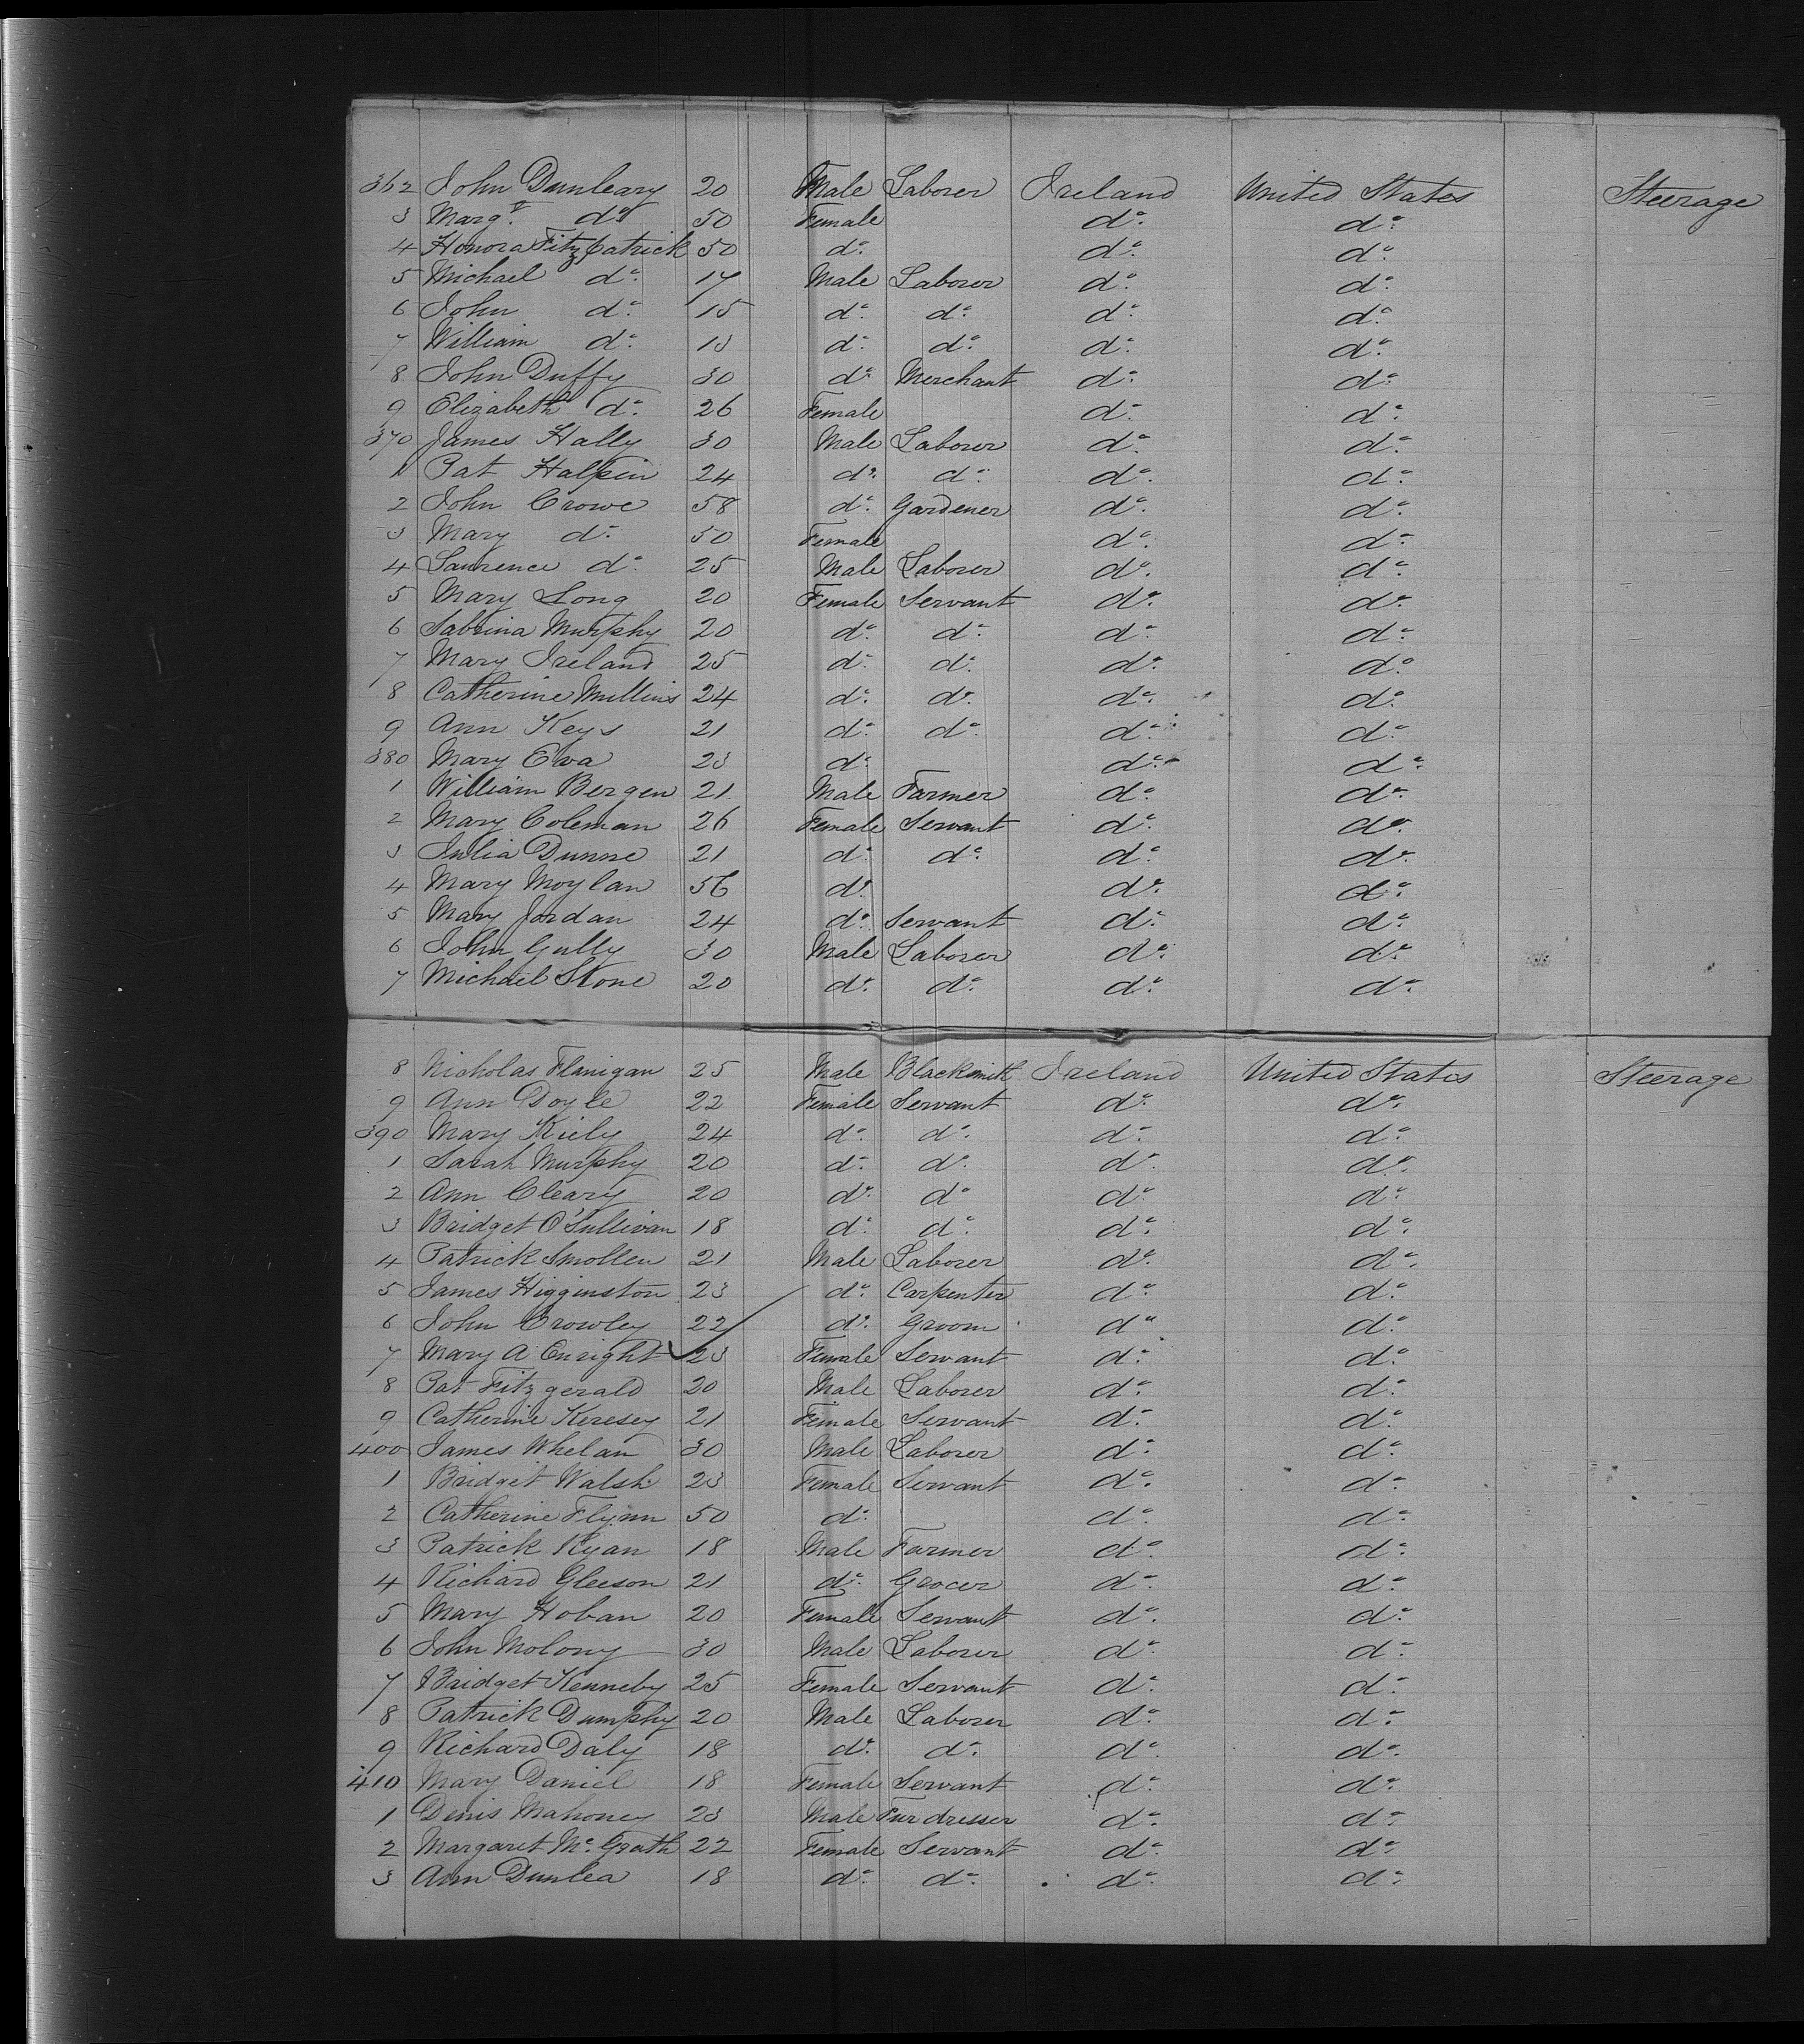 362 John Dunleary 20 Male Laborer Ireland United States Steerage
3 Margt. do 50 Female do. do.
4 Honora Fitzpatrick 50 do. do. do.
5 Michael do. 17 Male Laborer do. do.
6 John do. 15 do. do. do. do.
7 William do. 13 do. do. do. do.
8 John Duffy 30 do. Merchant do. do.
9 Elizabeth do. 26 Female do. do.
370 James Hally 30 Male Laborer do. do.
1 Pat Halpin 24 do. do. do. do.
2 John Crowe 58 do. Gardener do. do.
3 Mary do. 50 Female do. do.
4 Laurence do. 25 Male Laborer do. do.
5 Mary Long 20 Female Servant do. do.
6 Sabrina Murphy 20 do. do. do. do.
7 Mary Ireland 25 do. do. do. do.
8 Catherine Mullins 24 do. do. do. do.
9 Ann Keys 21 do. do. do. do.
380 Mary Eva 23 do. do. do.
1 William Bergen 21 Male Farmer do. do.
2 Mary Coleman 26 Female Servant do. do.
3 Julia Dunne 21 do. do. do. do.
4 Mary Moylan 56 do. do. do.
5 Mary Jordan 24 do. Servant do. do.
6 John Gully 30 Male Laborer do. do.
7 Michael Stone 20 do. do. do. do.
8 Nicholas Flanigan 25 Male Blacksmith Ireland United States Steerage
9 Ann Doyle 22 Female Servant do. do.
390 Mary Kiely 24 do. do. do. do.
1 Sarah Murphy 20 do. do. do. do.
2 Ann Cleary 20 do. do. do. do.
3 Bridget O'Sullivan 18 do. do. do. do.
4 Patrick Smollen 21 Male Laborer do. do.
5 James Higginston 23 do. Carpenter do. do.
6 John Crowley 22 do. Groom do. do.
7 Mary A Enright 23 Female Servant do. do.
8 Pat Fitzgerald 20 Male Laborer do. do.
9 Catherine Keresey 21 Female Servant do. do.
400 James Whelan 30 Male Laborer do. do.
1 Bridget Walsh 23 Female Servant do. do.
2 Catherine Flynn 50 do. do. do.
3 Patrick Ryan 18 Male Farmer do. do.
4 Richard Gleeson 21 do. Grocer do. do.
5 Mary Hoban 20 Female Servant do. do.
6 John Molony 30 Male Laborer do. do.
7 Bridget Kenneby 25 Female Servant do. do.
8 Patrick Dumphy 20 Male Laborer do. do.
9 Richard Daly 18 do. do. do. do.
410 Mary Daniel 18 Female Servant do. do.
1 Denis Mahoney 23 Male Fur dresser do. do.
2 Margaret Mc. Grath 22 Female Servant do. do.
3 Ann Dunlea 18 do. do. do. do.